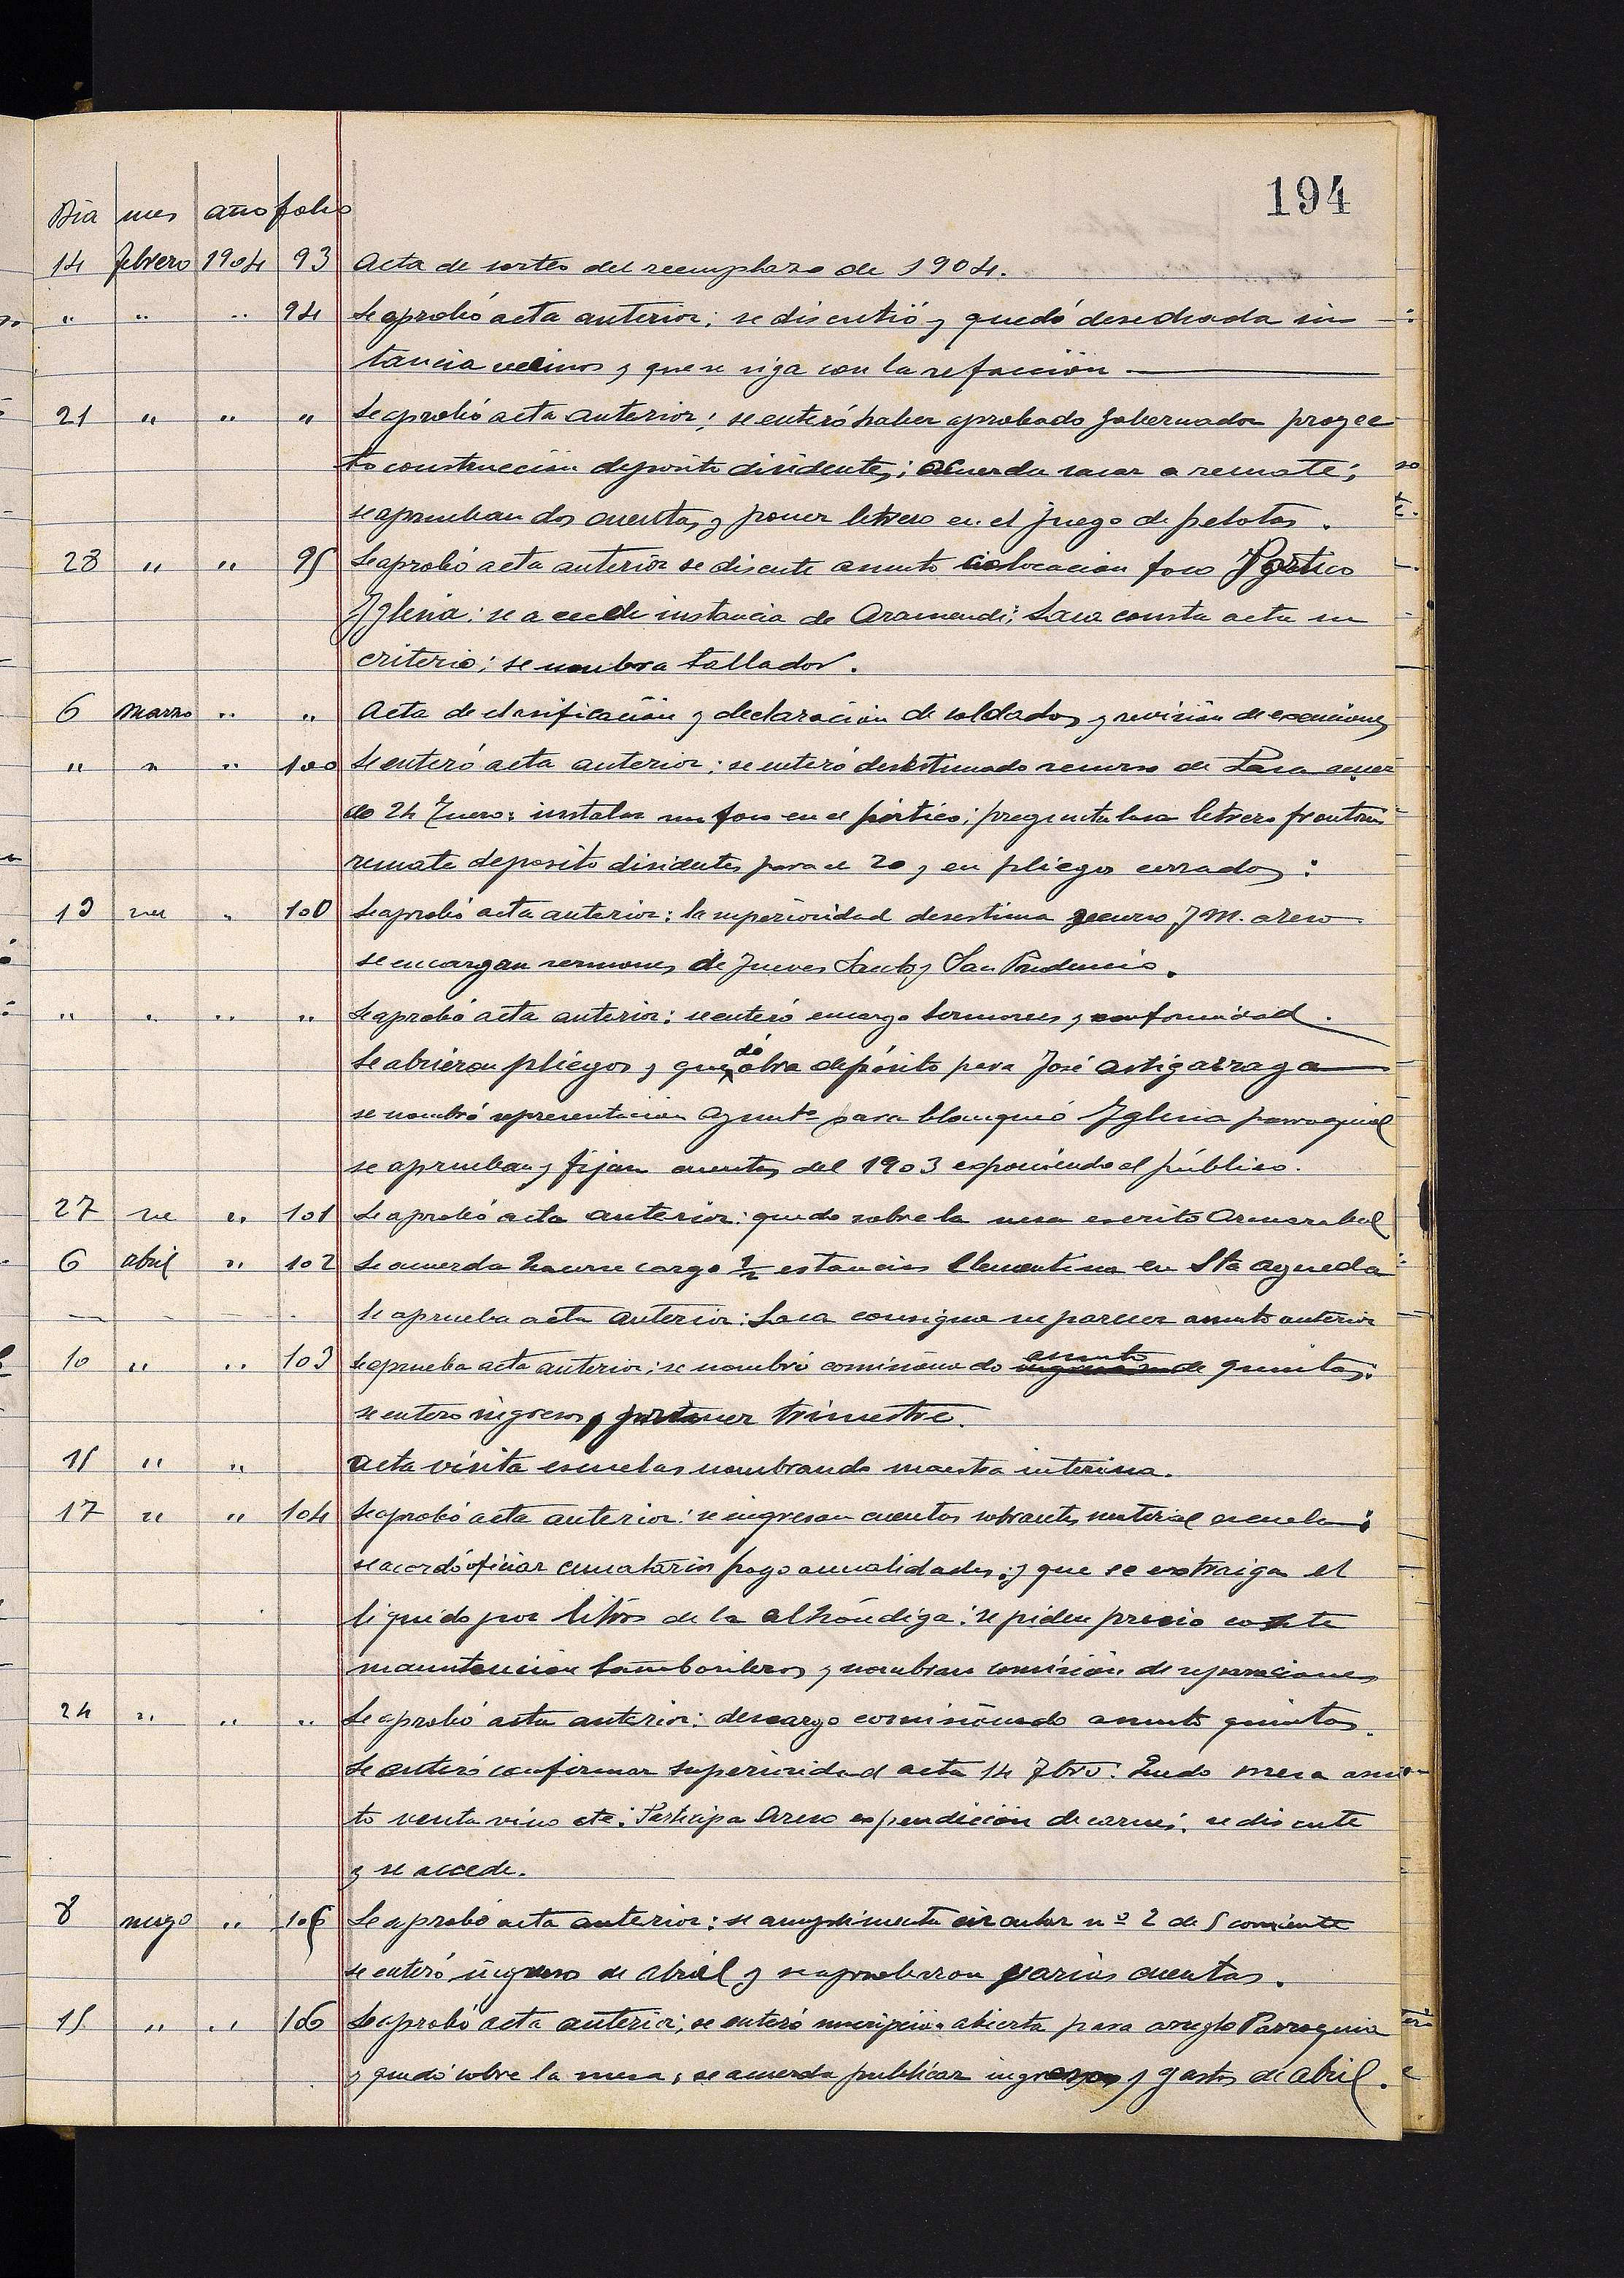 194
Dia mes año folio
14 febrero 1904 93 Acta de sorteo del reemplazo de 1904.
" " " 94 Se aprobó acta anterior; se discutió y quedó desechada ins
tancia vecinos y que se siga con la refacción
21 " " " Se aprobó acta anterior; se enteró haber aprobado Gobernador proyec
to construcción deposito disidentes; acuerda sacar a remate;
se aprueban dos cuentas y poner letrero en el juego de pelotas.
28 " " 95 Se aprobó acta anterior se discute asunto colocacion foco Portico
Yglesia: se accede instancia de Aramendi; Lasa consta acta su
criterio; se nombra tallador.
6 Marzo " " Acta de clasificación y declaración de soldados y revisión de exenciones
" " " 100 Se enteró acta anterior; se enteró desestimado recurso de Lasa acuer
do 24 Enero; instalar un foco en el pórtico; pregunta Lasa letrero frontón
remate deposito disidentes para el 20 y en pliegos cerrados:
13 " " 100 Se aprobó acta anterior: la superioridad desestima recurso J M. Areso
se encargan sermones de Jueves Santo y San Prudencio.
" " " " Se aprobó acta anterior: se enteró encargo sermones y conformidad.
Se abrieron pliegos y quedó obra depósito para José Artigarraga
se nombró representación Ayunto para blanqueó Yglesia parroquial
se aprueban y fijan cuentas del 1903 exponiendo al público.
27 " " 101 Se aprobó acta anterior: quedo sobre la mesa escrito
6 abril " 102 Se acuerda hacerse cargo 1/2 estancias Clementina en Sta Agueda
Se aprueba acta anterior: Lasa consigna su parecer asunto anterior
10 " " 103 Se aprueba acta anterior; se nombró comisionado asunto de quintas:
se entero ingresos primer trimestre.
15 " " Acta visita escuelas nombrando maestra interina.
17 " " 104 Se aprobó acta anterior: se ingresan cuentas sobrantes material escuelas;
se acordó oficiar censatarios pago anualidades; y que se extraiga el
liquido por litros de la alhóndiga: se piden precio coste
manutencion tamborileros y nombran comisión de reparaciones
24 " " " Se aprobó acta anterior: descargo comisionado asunto quintas.
Se enteró confirmar superioridad acta 14 Fbro. Quedo mesa asun
to venta vino etc. Participa Areso expendición de carnes. se discute
y se accede.
8 mayo " 105 Se aprobó acta anterior: se cumplimenta circular nº 2 de 5 corriente
se enteró ingresos de Abril y se aprobaron varias cuentas.
15 " " 106 Se aprobó acta anterior; se enteró suscripción abierta para arreglo Parroquia
y quedó sobre la mesa; se acuerda publicar ingresos y gastos de Abril.